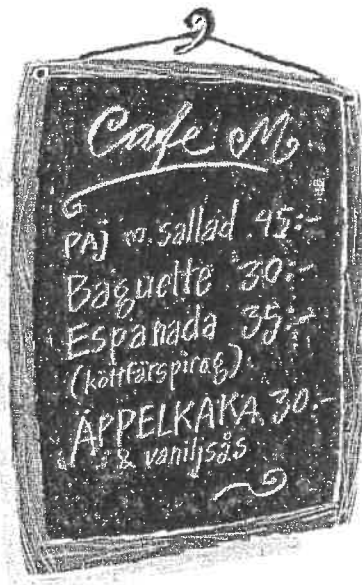 Cafe M
PAJ m. sallad 45:-
Baguette 30:-
Espanada 35:-
(köttfärspirog)
ÄPPELKAKA 30:-
& vaniljsås